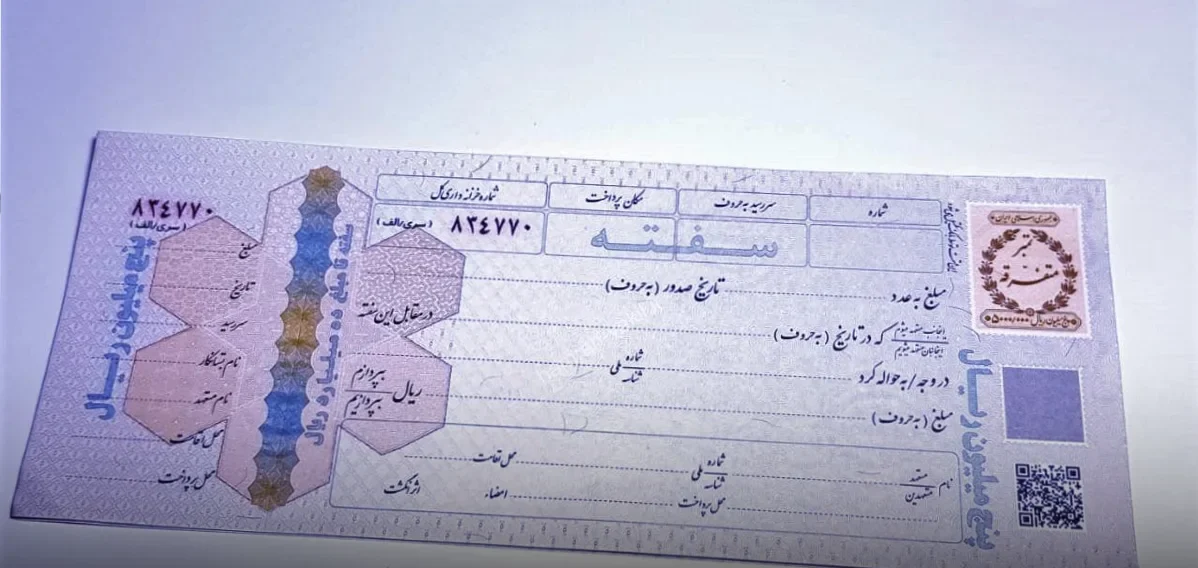 شماره
سررسید به حروف
مکان پرداخت
شماره خزانه داری کل
۸۳۴۷۷۰ (سری/الف)
سفته
جمهوری اسلامی ایران
تمبر
متفرقه
پنج میلیون ریال
۵۰۰۰/۰۰۰
مبلغ به عدد
تاریخ صدور (به حروف)
اینجانب متعهد میشوم
اینجانبان متعهد میشویم
که در تاریخ (به حروف)
در مقابل این سفته
در وجه / به حواله کرد
شماره
شناسه
ملی
مبلغ (به حروف)
ریال
بپردازم
بپردازیم
نام
متعهد
متعهدین
شماره
شناسه
ملی
محل اقامت
محل پرداخت
امضاء
اثر انگشت
پنج میلیون ریال
سفته تا مبلغ ده میلیارد ریال
۸۳۴۷۷۰
(سری/الف)
مبلغ
تاریخ
سررسید
نام بستانکار
نام متعهد
محل اقامت
محل پرداخت
پنج میلیون ریال